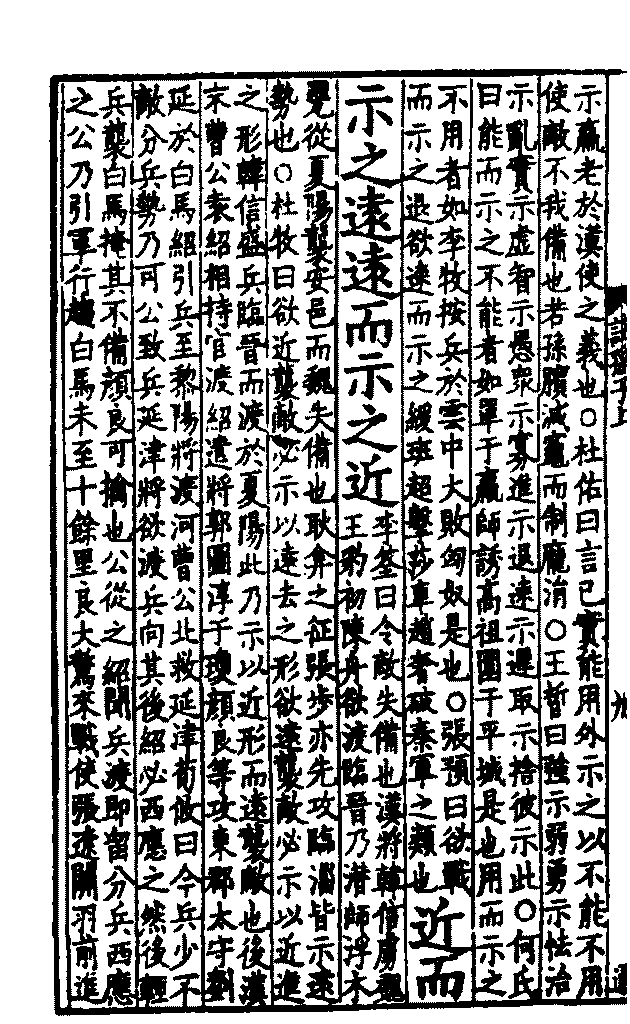 示羸老於漢使之義也○杜佑曰言己實能用外示之以不能不用
使敵不我備也若孫臏減竈而制龐涓○王晳曰強示弱勇示怯治
示亂實示虛智示愚衆示寡進示退速示遲取示捨彼示此○何氏
曰能而示之不能者如單于羸師誘高祖圍于平城是也用而示之
不用者如李牧按兵於雲中大敗匈奴是也○張預曰欲戰
而示之退欲速而示之緩班超擊莎車趙奢破秦軍之類也
近而
示之遠遠而示之近
李筌曰令敵失備也漢將韓信虜魏
王豹初陳舟欲渡臨晉乃潛師浮木
甖從夏陽襲安邑而魏失備也耿弇之征張步亦先攻臨淄皆示遠
勢也○杜牧曰欲近襲敵必示以遠去之形欲遠襲敵必示以近進
之形韓信盛兵臨晉而渡於夏陽此乃示以近形而遠襲敵也後漢
末曹公袁紹相持官渡紹遣將郭圖淳于瓊顏良等攻東郡太守劉
延於白馬紹引兵至黎陽將渡河曹公北救延津荀攸曰今兵少不
敵分兵勢乃可公致兵延津將欲渡兵向其後紹必西應之然後輕
兵襲白馬掩其不備顏良可擒也公從之紹聞兵渡即留分兵西應
之公乃引軍行趨白馬未至十餘里良大驚來戰使張遼關羽前進